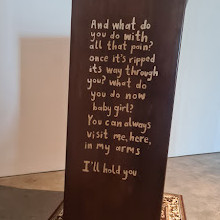 And what do
you do with,
all that pain?
once it's ripped
its way through
you? what do
you do now
baby girl?
You can always
visit me, here,
in my arms
I'll hold you